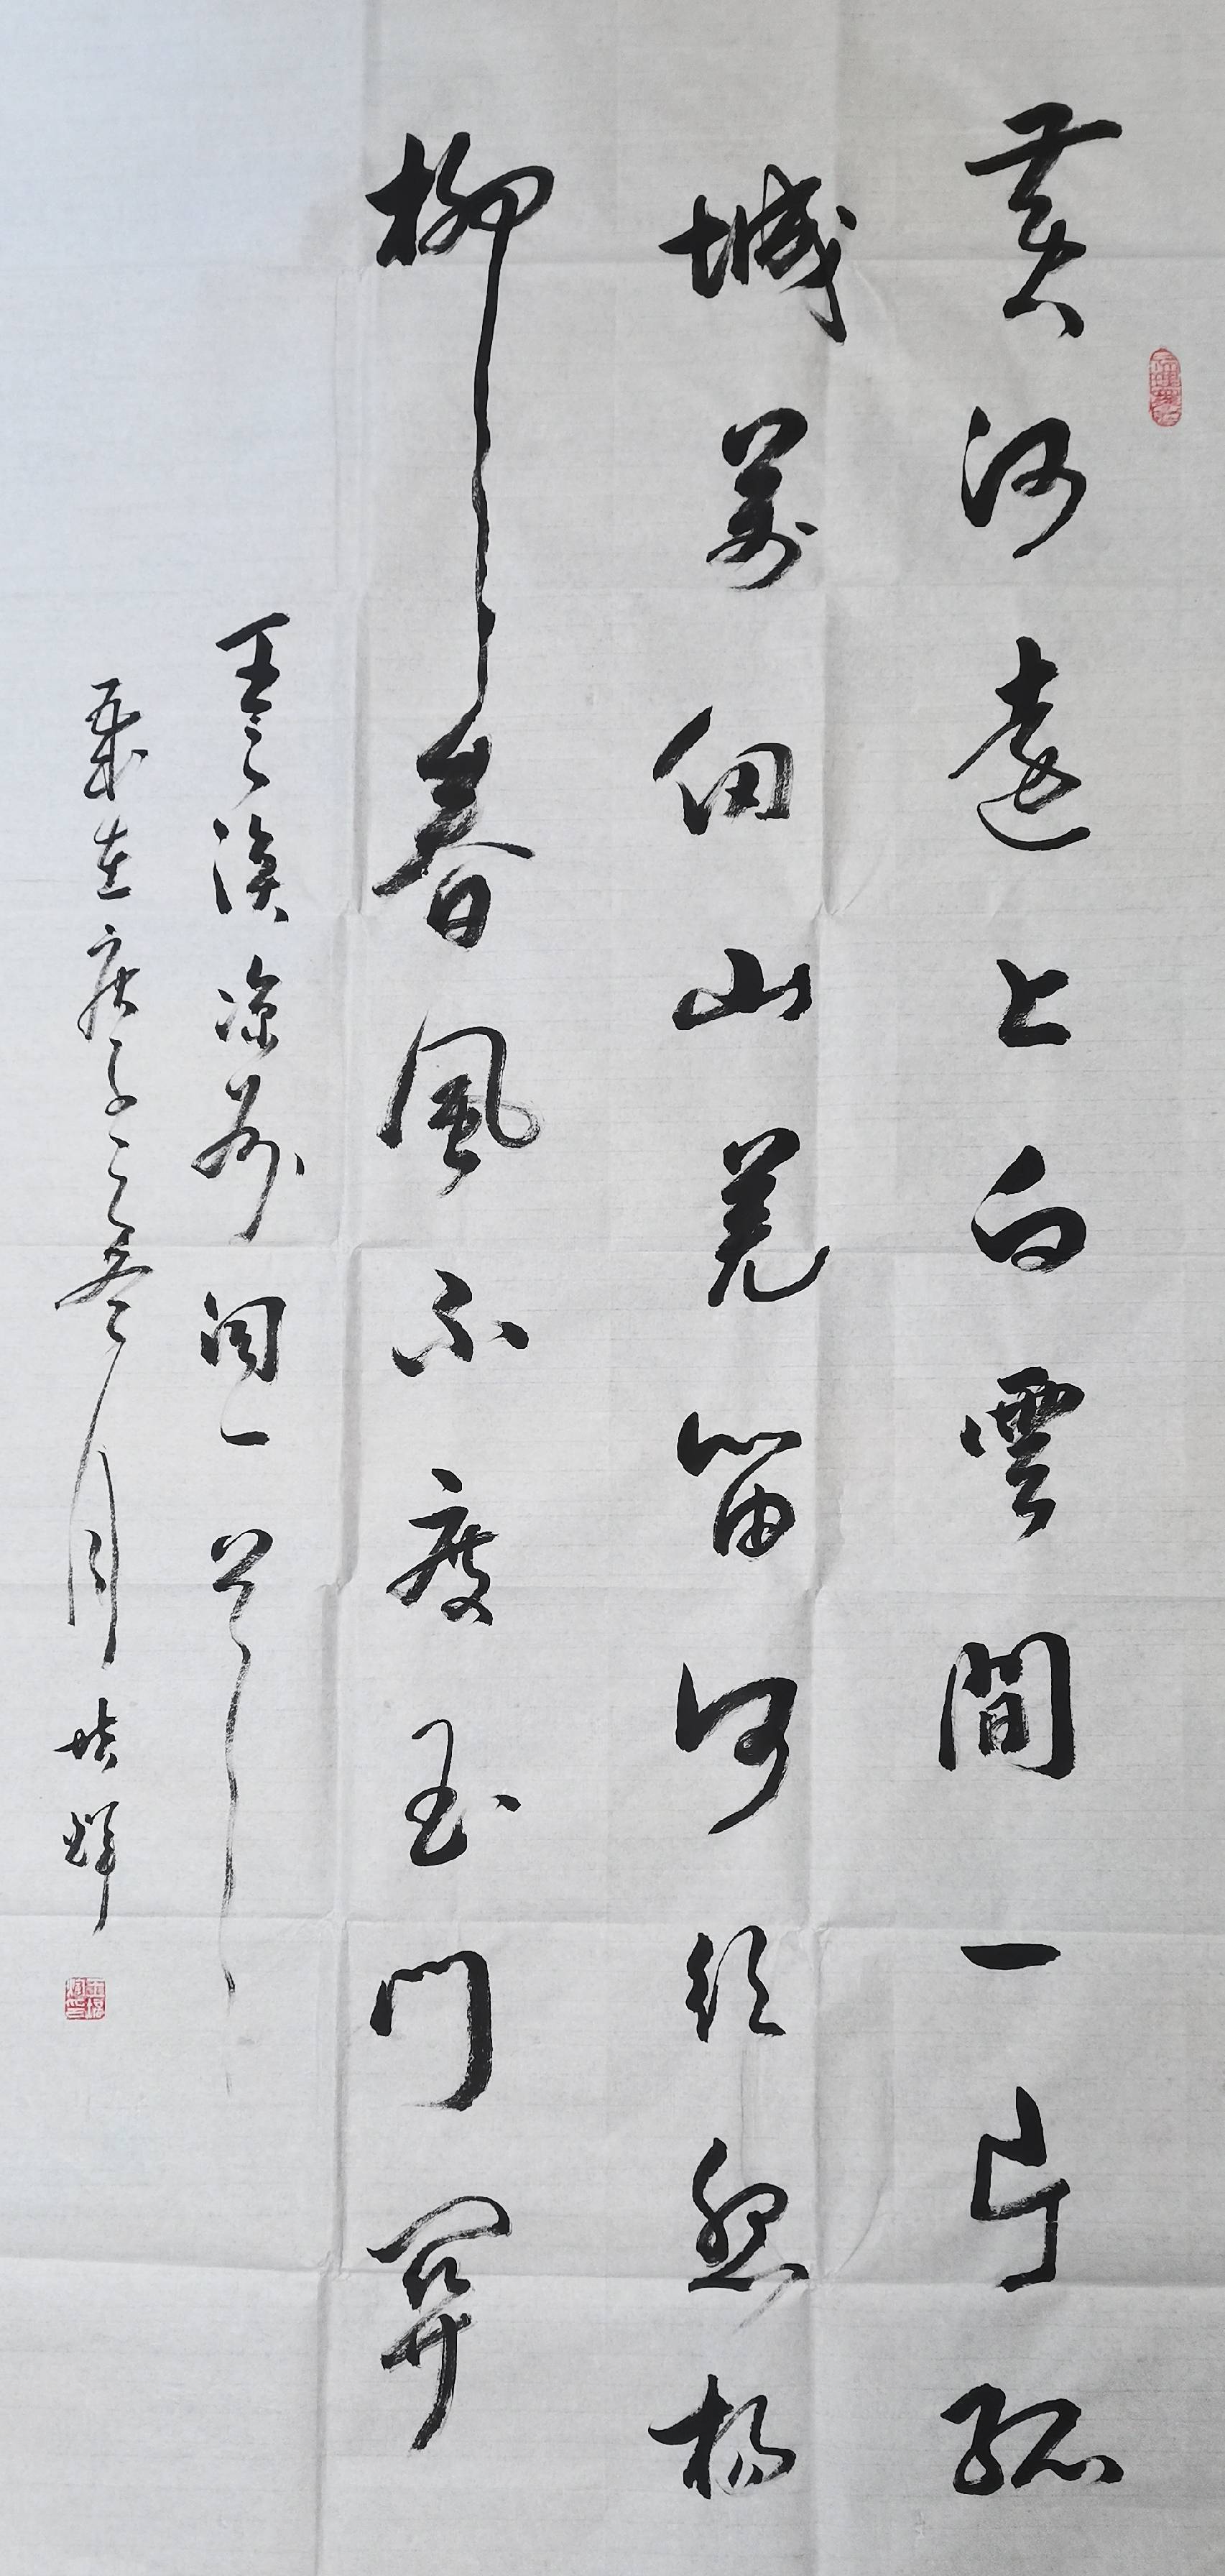 黄河遠上白雲間一片孤
城萬仞山羌笛何須怨楊
柳春風不度玉門關
王之渙凉州詞一首
歲在庚子之冬月培輝